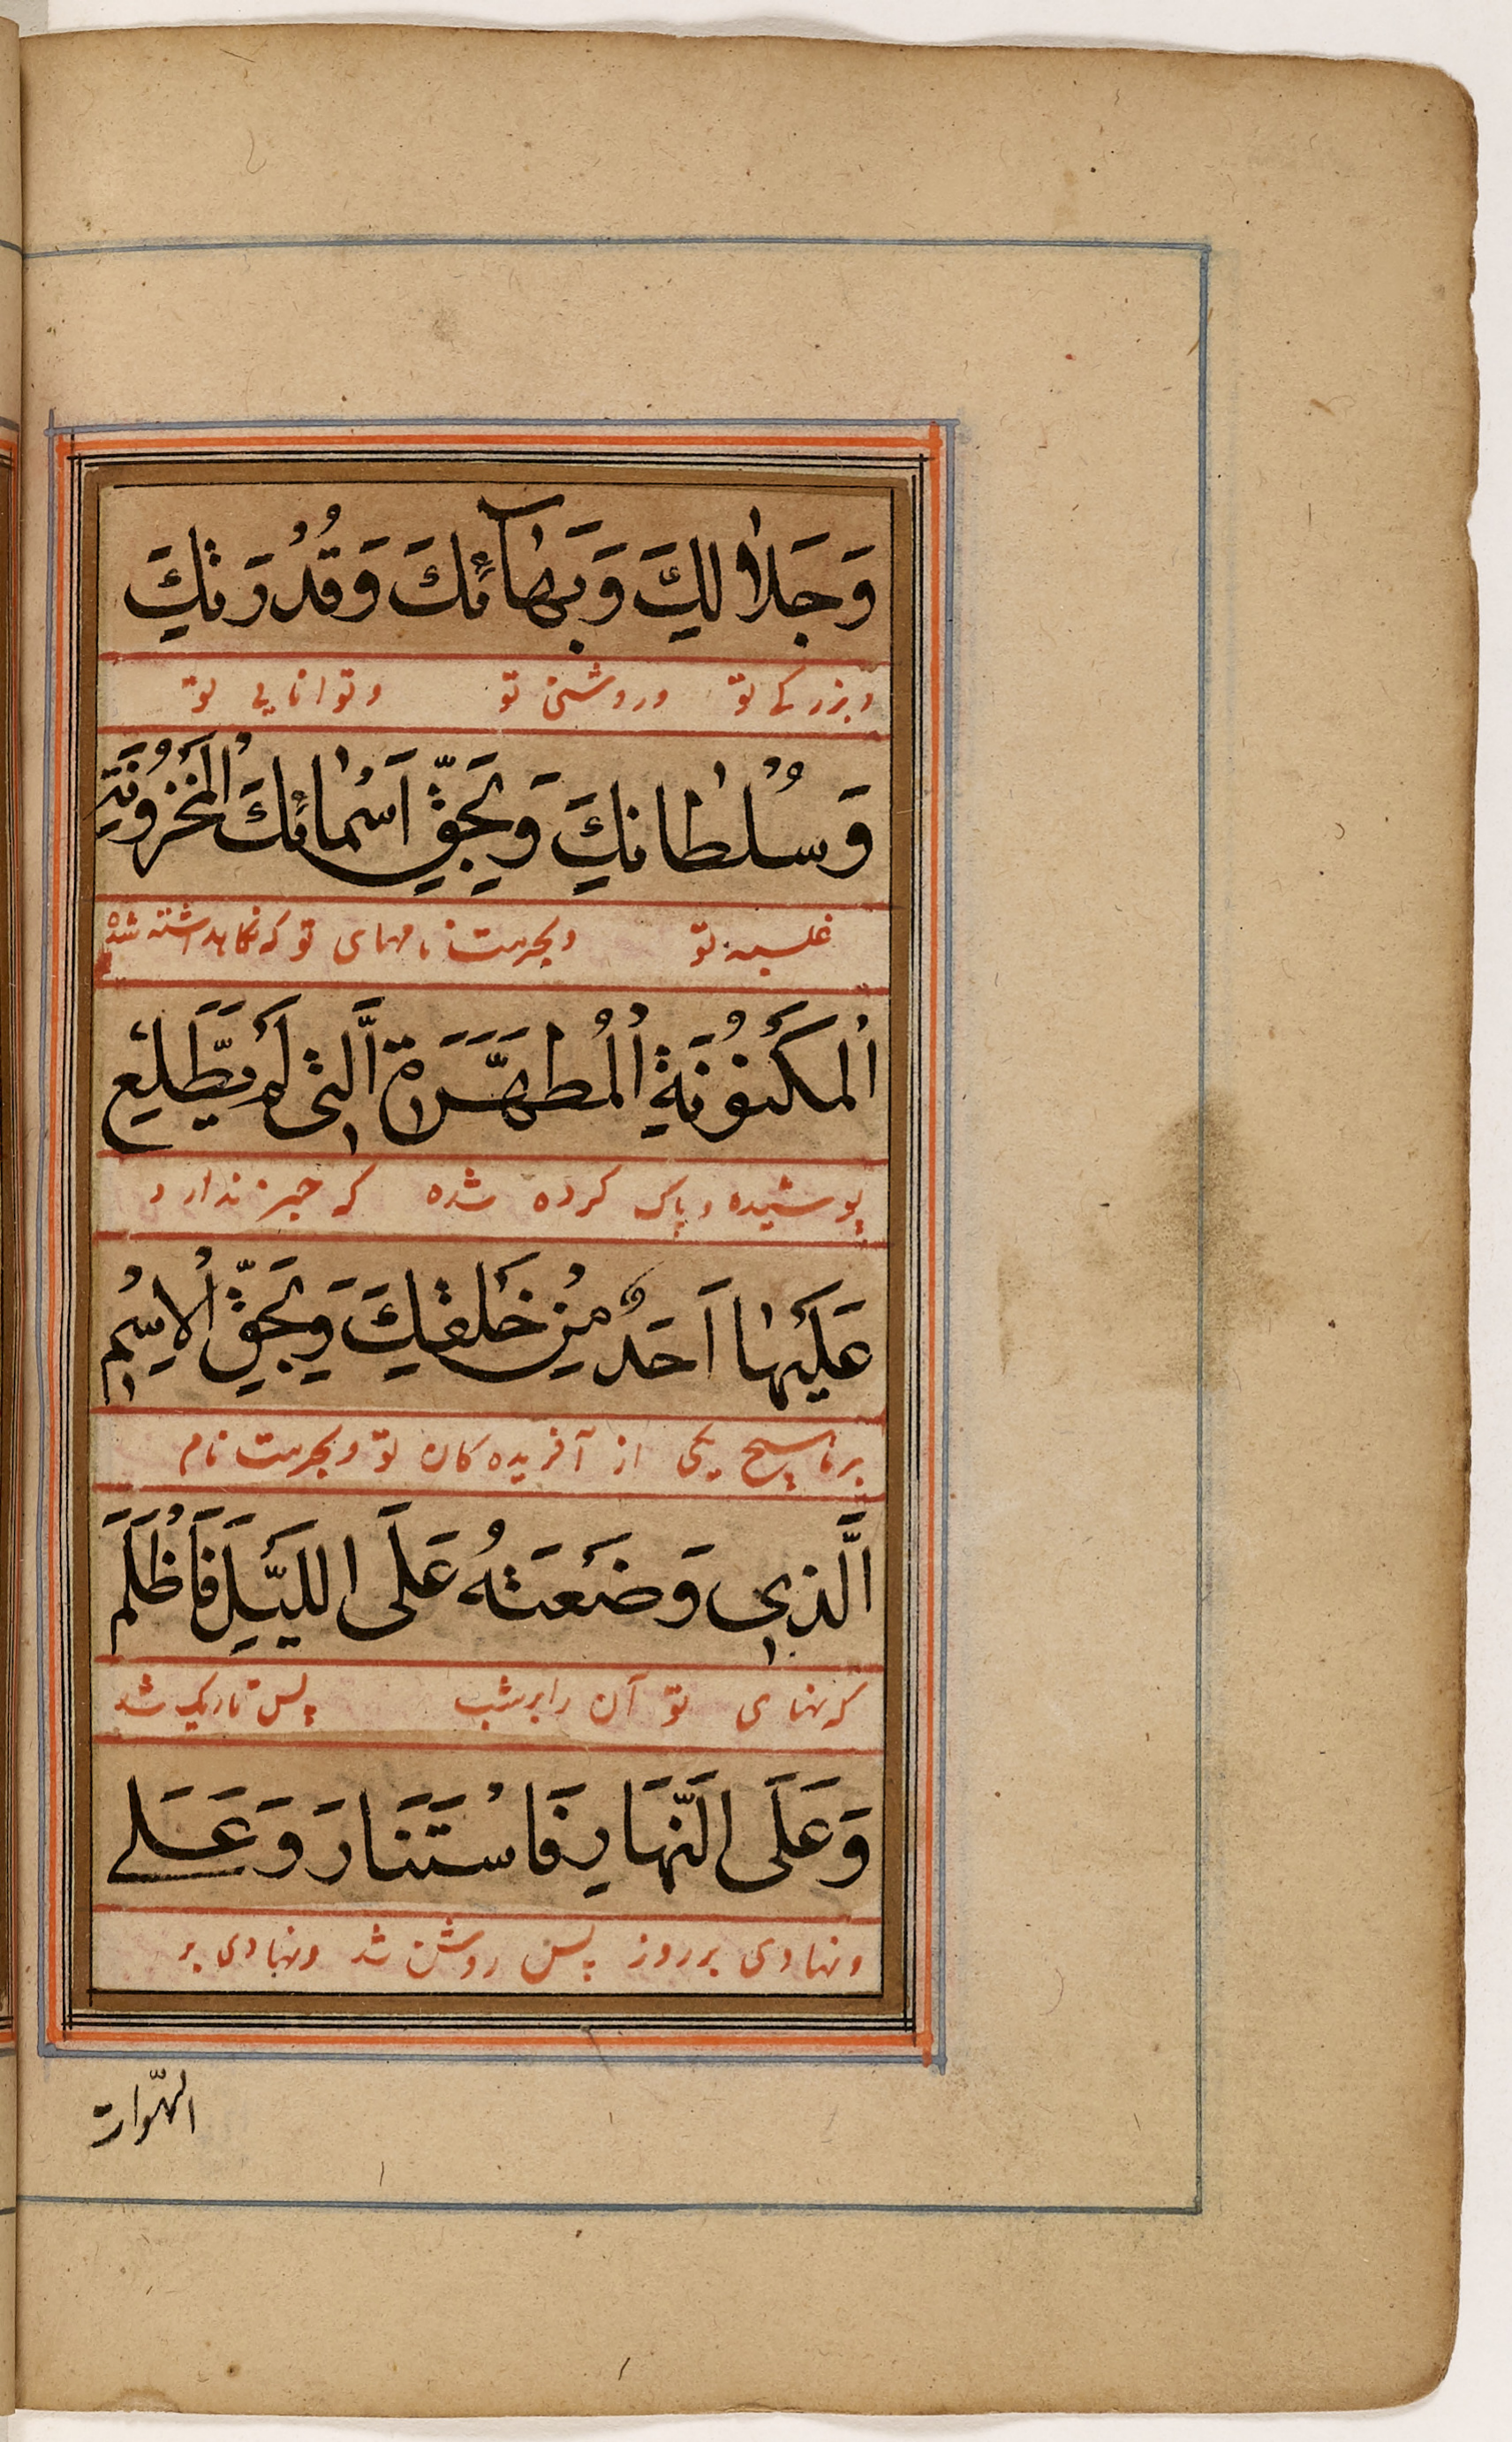 وَجَلَالِكَ وَبَهَآئِكَ وَقُدْرَتِكَ
وبزرکے تو وروشنی تو وتوانایی تو
وَسُلْطَانِكَ وَبِحَقِّ اَسْمَائِكَ الْمَخْزُونَةِ
غلبہ تو وبحرمت نامهای تو که نکاهداشته شده
الْمَكْنُونَةِ الْمُطَهَّرَةِ الَّتِي لَمْ يَطَّلِعْ
پوشیده و پاک کرده شده که خبر ندارد
عَلَيْهَا اَحَدٌ مِنْ خَلْقِكَ وَبِحَقِّ الْاِسْمِ
برنا هیچ یکی از آفریده کان تو وبحرمت نام
الَّذِي وَضَعْتَهُ عَلَى اللَّيْلِ فَاَظْلَمَ
که نهادی تو آن را برشب پس تاریک شد
وَعَلَى النَّهَارِ فَاسْتَنَارَ وَعَلے
ونهادی برروز پس روشن شد ونهادی بر